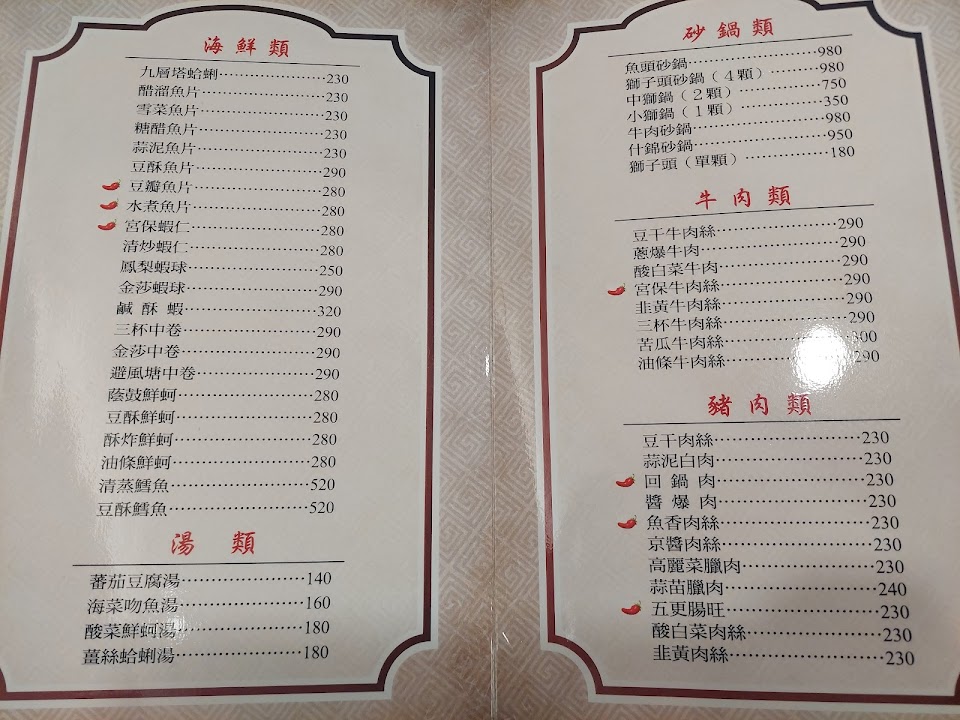 海鮮類
九層塔蛤蜊························230
醋溜魚片························230
雪菜魚片························230
糖醋魚片························230
蒜泥魚片························230
豆酥魚片························290
豆瓣魚片························280
水煮魚片························280
宮保蝦仁························280
清炒蝦仁························280
鳳梨蝦球························250
金莎蝦球························290
鹹酥蝦························320
三杯中卷························290
金莎中卷························290
避風塘中卷························290
蔭鼓鮮蚵························280
豆酥鮮蚵························280
酥炸鮮蚵························280
油條鮮蚵························280
清蒸鱈魚························520
豆酥鱈魚························520
湯類
蕃茄豆腐湯························140
海菜吻魚湯························160
酸菜鮮蚵湯························180
薑絲蛤蜊湯························180
砂鍋類
魚頭砂鍋························980
獅子頭砂鍋（4顆）············980
中獅鍋（2顆）··················750
小獅鍋（1顆）··················350
牛肉砂鍋························980
什錦砂鍋························950
獅子頭（單顆）··················180
牛肉類
豆干牛肉絲························290
蔥爆牛肉························290
酸白菜牛肉························290
宮保牛肉絲························290
韭黃牛肉絲························290
三杯牛肉絲························290
苦瓜牛肉絲························300
油條牛肉絲························290
豬肉類
豆干肉絲························230
蒜泥白肉························230
回鍋肉························230
醬爆肉························230
魚香肉絲························230
京醬肉絲························230
高麗菜臘肉························230
蒜苗臘肉························240
五更腸旺························230
酸白菜肉絲························230
韭黃肉絲························230